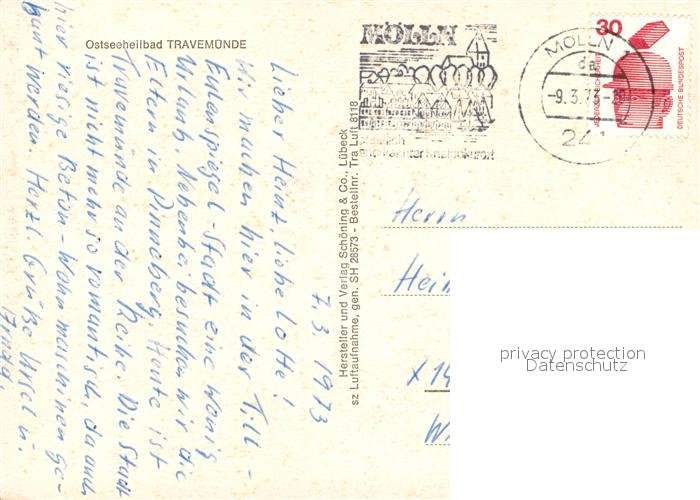 Ostseeheilbad TRAVEMÜNDE
7. 3. 1973
Liebe Heinz, liebe Lotte!
Wir machen hier in der Till-
Eulenspiegel-Stadt eine wenig
Urlaub. Nebenbei besuchen wir die
Eltern in Pinneberg. Heute ist
Travemünde an der Reihe. Die Stadt
ist nicht mehr so romantisch, da auch
hier riesige Beton-Wohnmaschinen ge-
baut werden. Herzl. Grüße Ursel u.
Hersteller und Verlag Schöning & Co., Lübeck
sz Luftaufnahme, gen. SH 28573 - Bestellnr. Tra Luft 8118
MÖLLN
Kneippkurort
MÖLLN 1
da
-9.3.7
241
30
JEDERZEIT SICHERHEIT
DEUTSCHE BUNDESPOST
Herrn
Hei
X 14
W
privacy protection
Datenschutz